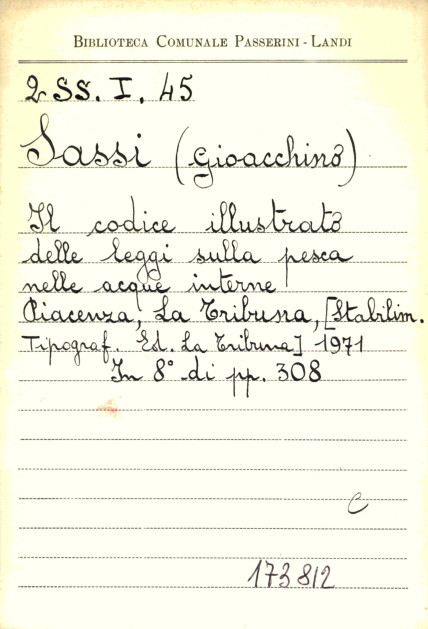 BIBLIOTECA COMUNALE PASSERINI - LANDI
2 SS. I. 45
Sassi (Gioacchino)
Il codice illustrato
delle leggi sulla pesca
nelle acque interne
Piacenza, La Tribuna, [Stabilim.
Tipograf. Ed. La Tribuna] 1971
In 8° di pp. 308
C
173812